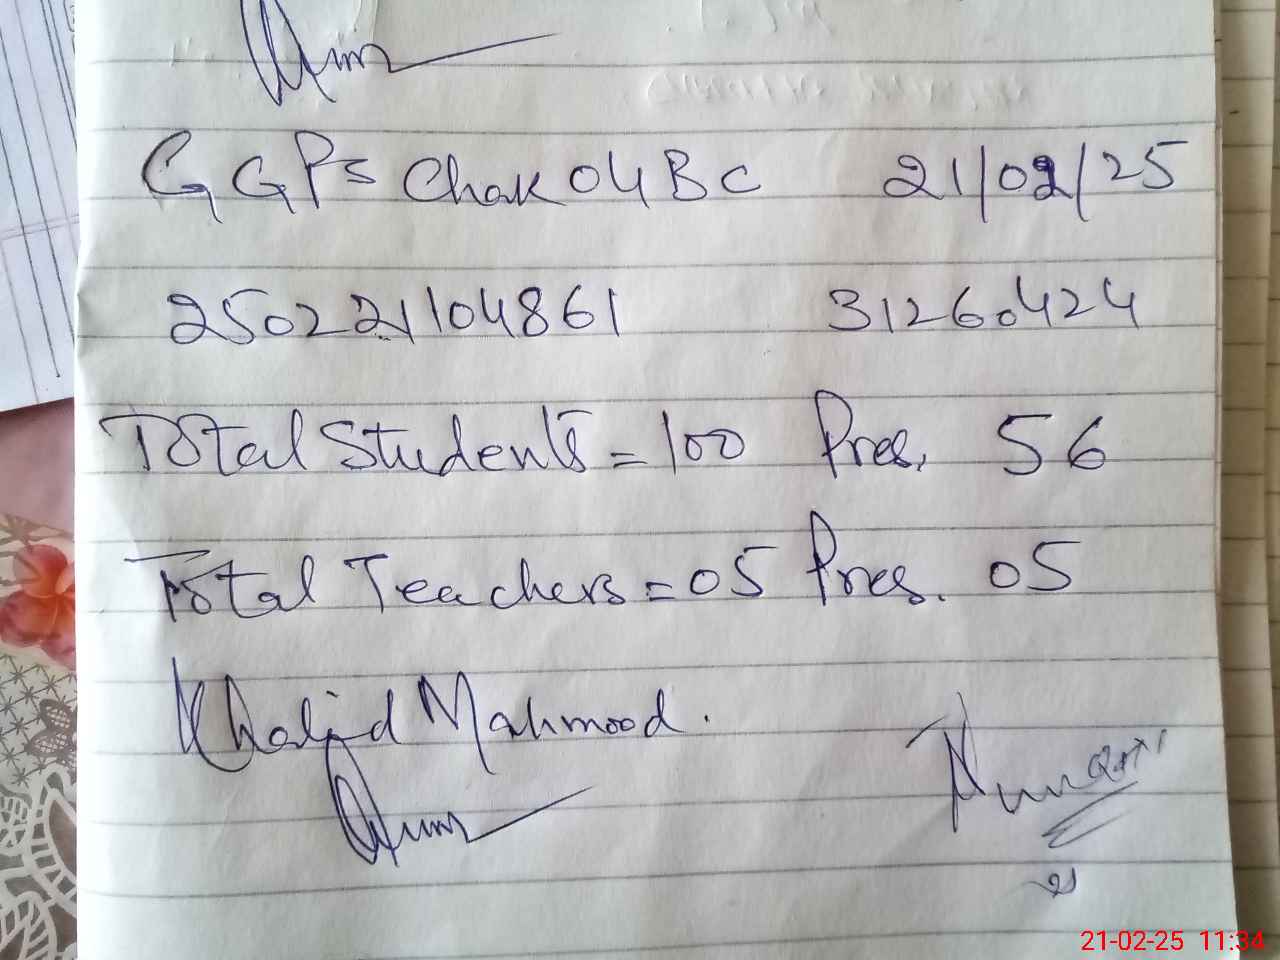 GGPS Chak 04 BC 21/02/25
250221104861 31260424
Total Students = 100 Pres. 56
Total Teachers = 05 Pres. 05
Khalid Mahmood.
21-02-25 11:34